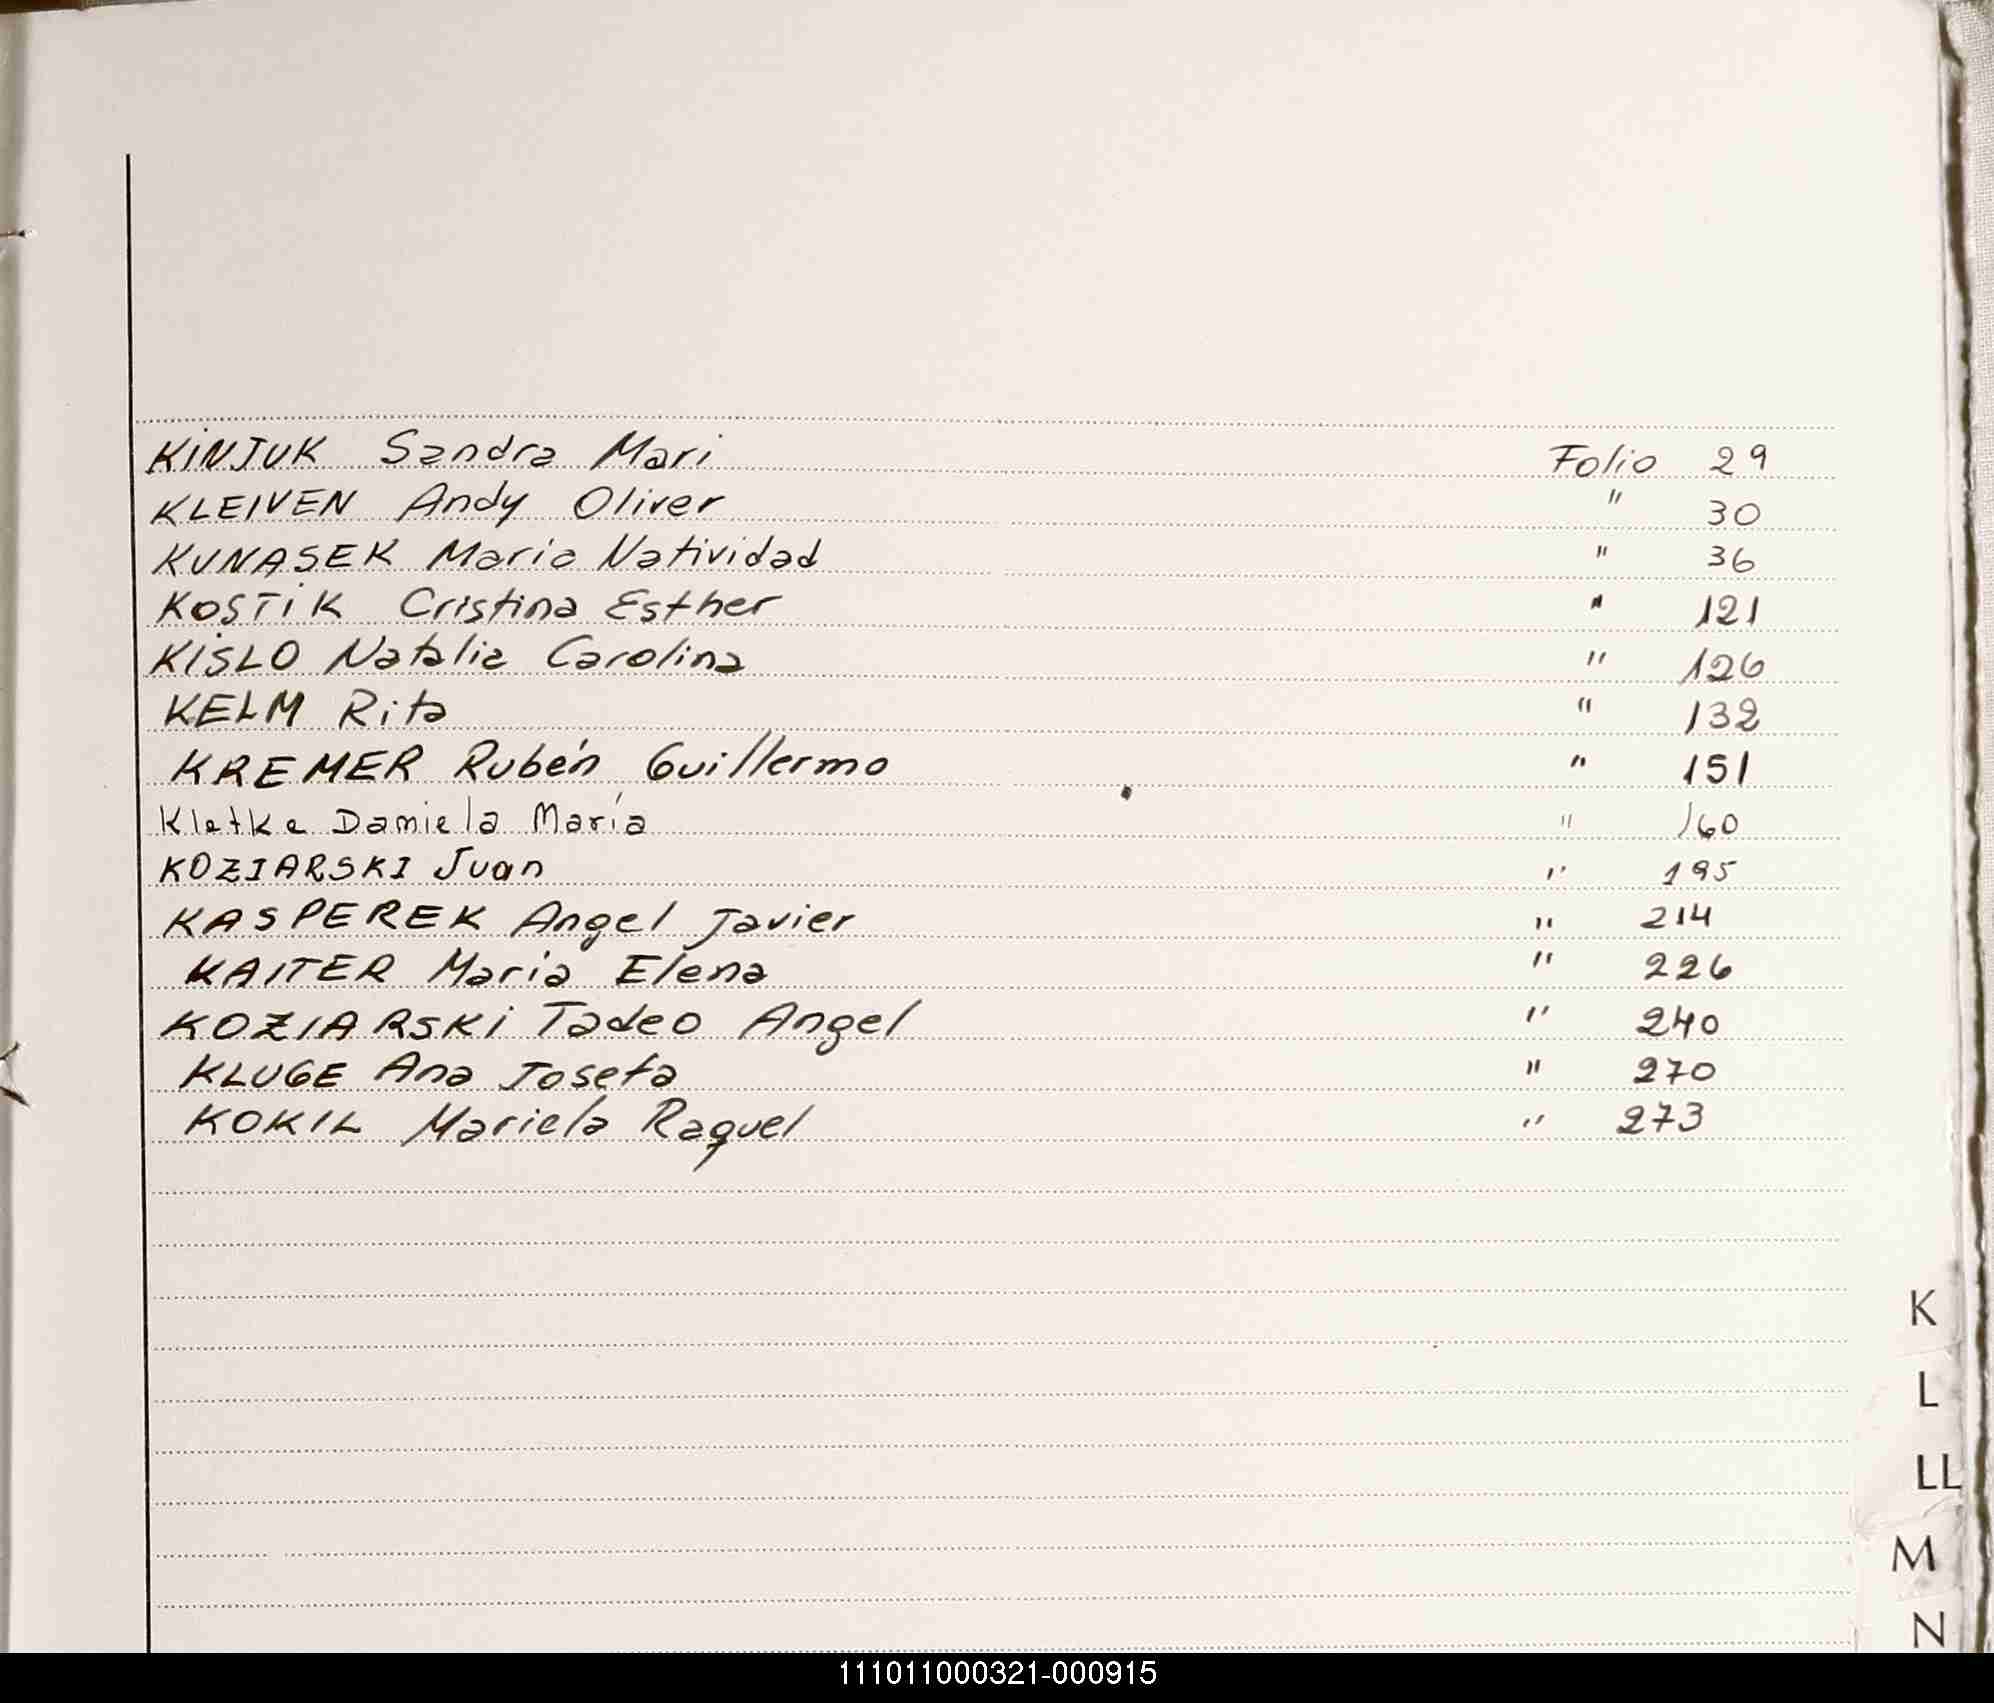 KINJUK Sandra Mari Folio 29
KLEIVEN Andy Oliver " 30
KUNASEK Maria Natividad " 36
KOSTiK Cristina Esther " 121
KISLO Natalia Carolina " 126
KELM Rita " 132
KREMER Rubén Guillermo " 151
Kletke Daniela María " 160
KOZIARSKI Juan " 195
KASPEREK Angel Javier " 214
KAITER Maria Elena " 226
KOZIARSKi Tadeo Angel " 240
KLUGE Ana Josefa " 270
KOKIL Mariela Raquel " 273
K
L
LL
M
N
111011000321-000915